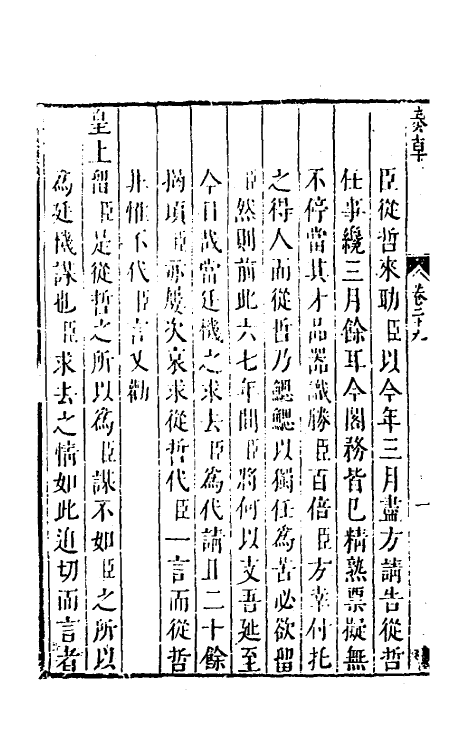 奏草
卷二十九
一
臣從哲來助臣以今年三月盡方請告從哲
任事纔三月餘耳今閣務皆已精熟票擬無
不停當其才品器識勝臣百倍臣方幸付托
之得人而從哲乃鰓鰓以獨任爲苦必欲留
臣然則前此六七年間臣將何以支吾延至
今日哉當廷機之求去臣爲代請且二十餘
揭頃臣亦屡次哀求從哲代臣一言而從哲
非惟不代臣言又勸
皇上留臣是從哲之所以爲臣謀不如臣之所以
爲廷機謀也臣求去之情如此迫切而言者